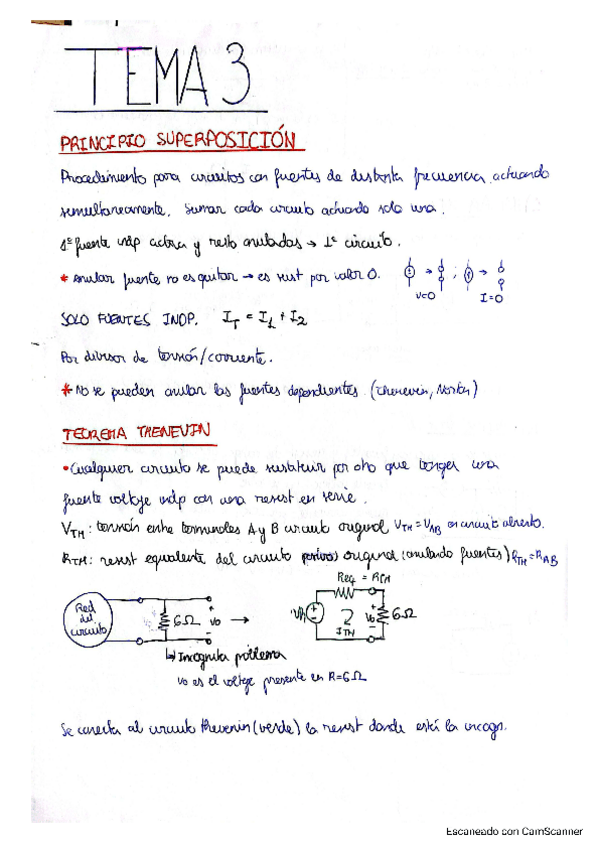 TEMA 3
PRINCIPIO SUPERPOSICIÓN
Procedimiento para circuitos con fuentes de distinta frecuencia actuando
semultoneamente. Sumar cada circuito actuando solo una.
1º fuente indp activa y resto anuladas → 1º circuito.
* Anular fuente no es quitar → es sust por valor 0.
V=0
I=0
SOLO FUENTES INDP. I_T = I_1 + I_2
Por divisor de tensión/corriente.
* No se pueden anular las fuentes dependientes (Thenevin, Norton)
TEOREMA THENEVIN
• Cualquier circuito se puede sustituir por otro que tenger una
fuente voltaje indp con una resist en serie.
V_TH: tensión entre terminales A y B circuito original V_TH = V_AB en circuito abierto.
R_TH: resist equivalente del circuito original (anulando fuentes) R_TH = R_AB
Red del circuito
6Ω
+
Vo
-
→
Req = R_TH
+
-
I_TH
+
Vo
-
6Ω
↳ Incognita problema
Vo es el voltaje presente en R=6Ω
Se conecta al circuito thevenin (verde) la resist donde está la incogn.
Escaneado con CamScanner